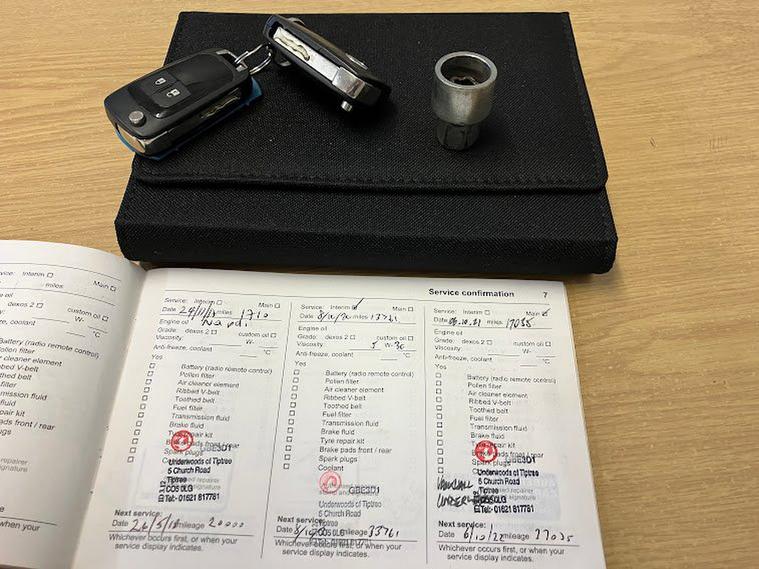 Service confirmation 7
Service: Interim ☐ Main ☐
miles
Engine oil
dexos 2 ☐ custom oil ☐
W-
coolant °C
Battery (radio remote control)
Pollen filter
Air cleaner element
Ribbed V-belt
Toothed belt
Fuel filter
Transmission fluid
Brake fluid
pair kit
ads front / rear
ugs
repairer
signature
when your
Service: Interim ☐ Main ☐
Date miles 1710
Engine oil
Grade: dexos 2 ☐ custom oil ☐
Viscosity: W-
Anti-freeze, coolant °C
Yes
☐ Battery (radio remote control)
☐ Pollen filter
☐ Air cleaner element
☐ Ribbed V-belt
☐ Toothed belt
☐ Fuel filter
☐ Transmission fluid
☐ Brake fluid
☐ Tyre repair kit
☐ Brake pads front / rear
☐ Spark plugs
GBE3D1
Underwoods of Tiptree
5 Church Road
Tiptree
CO5 0LG
Tel:- 01621 817781
Next service:
Date mileage 20000
Whichever occurs first, or when your
service display indicates.
Service: Interim ☑ Main ☐
Date 8/10/20 miles 13761
Engine oil
Grade: dexos 2 ☐ custom oil ☐
Viscosity: 5 W-30
Anti-freeze, coolant °C
Yes
☐ Battery (radio remote control)
☐ Pollen filter
☐ Air cleaner element
☐ Ribbed V-belt
☐ Toothed belt
☐ Fuel filter
☐ Transmission fluid
☐ Brake fluid
☐ Tyre repair kit
☐ Brake pads front / rear
☐ Spark plugs
☐ Coolant
GBE3D1
Underwoods of Tiptree
5 Church Road
Tiptree
CO5 0LG
01621 817781
Next service:
Date mileage 33761
Whichever occurs first, or when your
service display indicates.
Service: Interim ☐ Main ☑
Date 06.10.21 miles 17035
Engine oil
Grade: dexos 2 ☐ custom oil ☐
Viscosity: W-
Anti-freeze, coolant °C
Yes
☐ Battery (radio remote control)
☐ Pollen filter
☐ Air cleaner element
☐ Ribbed V-belt
☐ Toothed belt
☐ Fuel filter
☐ Transmission fluid
☐ Brake fluid
☐ Tyre repair kit
☐ Brake pads front / rear
☐ Spark plugs
GBE3D1
Underwoods of Tiptree
5 Church Road
Tiptree
CO5 0LG
Tel:- 01621 817781
VAUXHALL
Next service:
Date 6/10/22 mileage 37035
Whichever occurs first, or when your
service display indicates.